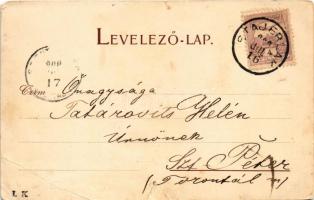 LEVELEZŐ-LAP.
STÁJERLAK
16
17
Czim Őnagysága
Tatárovits Helén
Úrnőnek
Szt Péter
(Torontál m)
I. K